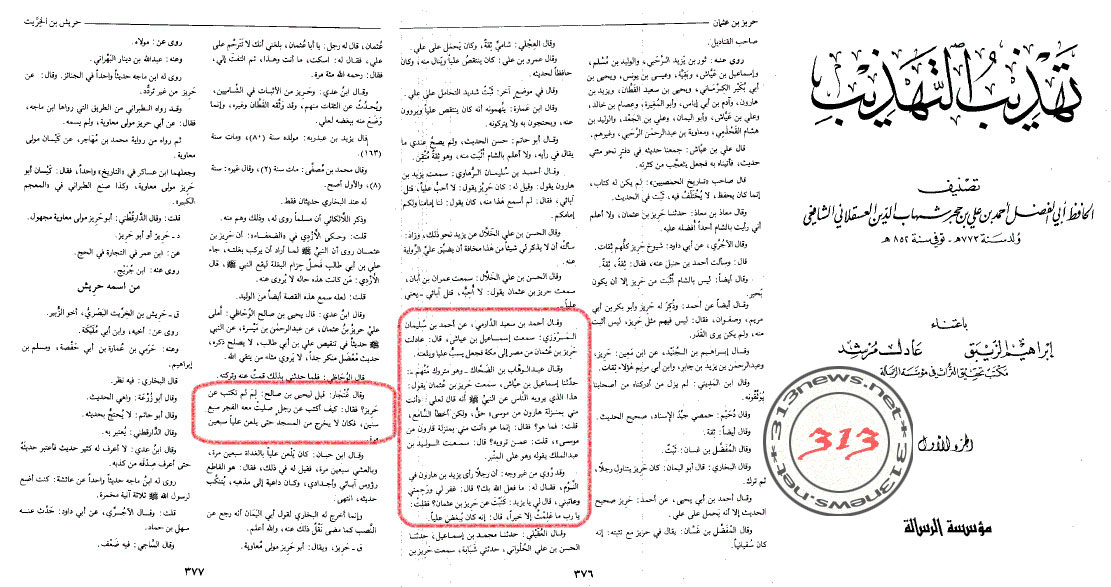 تهذيب التهذيب
تصنيف
الحافظ أبي الفضل أحمد بن علي بن حجر شهاب الدين العسقلاني الشافعي
ولد سنة ٧٧٣هـ - توفي سنة ٨٥٢ هـ
باعتناء
إبراهيم الزيبق عادل مرشد
مكتب تحقيق التراث في مؤسسة الرسالة
الجزء الأول
مؤسسة الرسالة
313
313news.net
313news.net
حريز بن عثمان
صاحب القناديل.
روى عنه: ثور بن يزيد الرحبي، والوليد بن مسلم،
وإسماعيل بن عياش، وبقية، وعيسى بن يونس، ويحيى بن
أبي بكير الكرماني، ويحيى بن سعيد القطان، ويزيد بن
هارون، وآدم بن أبي إياس، وأبو المغيرة، وعصام بن خالد،
وعلي بن عياش، وأبو اليمان، وعلي بن الجعد، والوليد بن
هشام القحذمي، ومعاوية بن عبدالرحمن الرحبي، وغيرهم.
قال علي بن عياش: جمعنا حديثه في دفتر نحو مئتي
حديث، فأتيناه به فجعل يتعجب من كثرته.
قال صاحب «تاريخ الحمصيين»: لم يكن له كتاب،
إنما كان يحفظ، لا يختلف فيه، ثبت في الحديث.
وقال معاذ بن معاذ: حدثنا حريز بن عثمان، ولا أعلم
أني رأيت بالشام أحداً أفضله عليه.
وقال الآجري، عن أبي داود: شيوخ حريز كلهم ثقات.
قال: وسألت أحمد بن حنبل عنه، فقال: ثقة، ثقة.
وقال أيضاً: ليس بالشام أثبت من حريز إلا أن يكون
بحير.
وقال أيضاً عن أحمد: وذكر له حريز وأبو بكر بن أبي
مريم، وصفوان، فقال: ليس فيهم مثل حريز، ليس أثبت
منه، ولم يكن يرى القدر.
وقال إبراهيم بن الجنيد، عن ابن معين: حريز،
وعبدالرحمن بن يزيد بن جابر، وابن أبي مريم هؤلاء ثقات.
وقال ابن المديني: لم يزل من أدركناه من أصحابنا
يوثقونه.
وقال دحيم: حمصي جيد الإسناد، صحيح الحديث.
وقال أيضاً: ثقة.
وقال المفضل بن غسان: ثبت.
وقال البخاري: قال أبو اليمان: كان حريز يتناول رجلاً،
ثم ترك.
وقال أحمد بن أبي يحيى، عن أحمد: حريز صحيح
الحديث إلا أنه يحمل على علي.
وقال المفضل بن غسان: يقال في حريز مع تثبته: إنه
كان سفيانياً.
وقال العجلي: شامي ثقة، وكان يحمل على علي.
وقال عمرو بن علي: كان ينتقص علياً وينال منه، وكان
حافظاً لحديثه.
وقال في موضع آخر: ثبت شديد التحامل على علي.
وقال ابن عمار: يتهمونه أنه كان ينتقص علياً ويروون
عنه، ويحتجون به ولا يتركونه.
وقال أبو حاتم: حسن الحديث، ولم يصح عندي ما
يقال في رأيه، ولا أعلم بالشام أثبت منه، وهو ثقة متقن.
وقال أحمد بن سليمان الرهاوي: سمعت يزيد بن
هارون يقول: وقيل له: كان حريز يقول: لا أحب علياً، قتل
آبائي، فقال: لم أسمع هذا منه، كان يقول: لنا إمامنا ولكم
إمامكم.
وقال الحسن بن علي الخلال عن يزيد نحو ذلك، وزاد:
سألته أن لا يذكر لي شيئاً من هذا مخافة أن يضيق علي الرواية
عنه.
وقال الحسن بن علي الخلال: سمعت عمران بن أبان،
سمعت حريز بن عثمان يقول: لا أحبه، قتل آبائي - يعني
علياً -.
وقال أحمد بن سعيد الدارمي، عن أحمد بن سليمان
المروزي: سمعت إسماعيل بن عياش، قال: عادلت
حريز بن عثمان من مصر إلى مكة فجعل يسب علياً ويلعنه.
وقال عبدالوهاب بن الضحاك - وهو متروك متهم -:
حدثنا إسماعيل بن عياش، سمعت حريز بن عثمان يقول:
هذا الذي يرويه الناس عن النبي ﷺ أنه قال لعلي: «أنت
مني بمنزلة هارون من موسى» حق، ولكن أخطأ السامع،
قلت: فما هو؟ فقال: إنما هو «أنت مني بمنزلة قارون من
موسى»، قلت: عمن ترويه؟ قال: سمعت الوليد بن
عبدالملك يقوله وهو على المنبر.
وقد روي من غير وجه: أن رجلاً رأى يزيد بن هارون في
النوم، فقال له: ما فعل الله بك؟ قال: غفر لي ورحمني
وعاتبني، قال لي يا يزيد: كتبت عن حريز بن عثمان؟ فقلت:
يا رب ما علمت إلا خيراً، قال: إنه كان يبغض علياً.
وقال العقيلي: حدثنا محمد بن إسماعيل، حدثنا
الحسن بن علي الحلواني، حدثني شبابة، سمعت حريز بن
٣٧٦
حريش بن الخريت
عثمان، قال له رجل: يا أبا عثمان، بلغني أنك لا تترحم على
علي، فقال له: اسكت، ما أنت وهذا، ثم التفت إلي،
فقال: رحمه الله مئة مرة.
وقال ابن عدي: وحريز من الأثبات في الشاميين،
ويحدث عن الثقات منهم، وقد وثقه القطان وغيره، وإنما
وضع منه ببغضه لعلي.
قال يزيد بن عبدربه: مولده سنة (٨٠)، ومات سنة
(١٦٣)
وقال محمد بن مصفى: مات سنة (٢)، وقال غيره: سنة
(٨)، والأول أصح.
له عند البخاري حديثان فقط.
وذكر اللالكائي أن مسلماً روى له، وذلك وهم منه.
قلت: وحكى الأزدي في «الضعفاء»: أن حريز بن
عثمان روى أن النبي ﷺ لما أراد أن يركب بغلته، جاء
علي بن أبي طالب فحل حزام البغلة ليقع النبي ﷺ. قال
الأزدي: من كانت هذه حاله لا يروى عنه.
قلت: لعله سمع هذه القصة أيضاً من الوليد.
وقال ابن عدي: قال يحيى بن صالح الوحاظي: أملى
علي حريز بن عثمان، عن عبدالرحمن بن ميسرة، عن النبي
ﷺ حديثاً في تنقيص علي بن أبي طالب، لا يصلح ذكره،
حديث معضل منكر جداً، لا يروي مثله من يتقي الله.
قال الوحاظي: فلما حدثني بذلك قمت عنه وتركته.
وقال غنجار: قيل ليحيى بن صالح: لم لم تكتب عن
حريز؟ فقال: كيف أكتب عن رجل صليت معه الفجر سبع
سنين، فكان لا يخرج من المسجد حتى يلعن علياً سبعين
مرة.
وقال ابن حبان: كان يلعن علياً بالغداة سبعين مرة،
وبالعشي سبعين مرة، فقيل له في ذلك، فقال: هو القاطع
رؤوس آبائي وأجدادي، وكان داعية إلى مذهبه، يتنكب
حديثه، انتهى.
وإنما أخرج له البخاري لقول أبي اليمان أنه رجع عن
النصب كما مضى نقل ذلك عنه، والله أعلم.
ق - حريز، ويقال: أبو حريز مولى معاوية.
روى عن: مولاه.
وعنه: عبدالله بن دينار البهراني.
روى له ابن ماجه حديثاً واحداً في الجنائز. وقال: عن
حريز من غير تردد.
وقد رواه الطبراني من الطريق التي رواها ابن ماجه،
فقال: عن أبي حريز مولى معاوية، ولم يسمه.
ثم رواه من رواية محمد بن مهاجر، عن كيسان مولى
معاوية.
وجعلهما ابن عساكر في «التاريخ» واحداً، فقال: كيسان أبو
حريز مولى معاوية، وكذا صنع الطبراني في «المعجم
الكبير».
قلت: وقال الدارقطني: أبو حريز مولى معاوية مجهول.
د - حريز أو أبو حريز.
عن: ابن عمر في التجارة في الحج.
روى عنه: ابن جريج.
من اسمه حريش
ق - حريش بن الخريت البصري، أخو الزبير.
روى عن: أخيه، وابن أبي مليكة.
وعنه: حرمي بن عمارة بن أبي حفصة، ومسلم بن
إبراهيم.
قال البخاري: فيه نظر.
وقال أبو زرعة: واهي الحديث.
وقال أبو حاتم: لا يحتج بحديثه.
وقال الدارقطني: يعتبر به.
وقال ابن عدي: لا أعرف له كثير حديث فأعتبر حديثه
حتى أعرف صدقه من كذبه.
روى له ابن ماجه حديثاً واحداً عن عائشة: كنت أضع
لرسول الله ﷺ ثلاثة آنية مخمرة.
قلت: وقال الآجري، عن أبي داود: حدث عنه
سهل بن حماد.
وقال الساجي: فيه ضعف.
٣٧٧